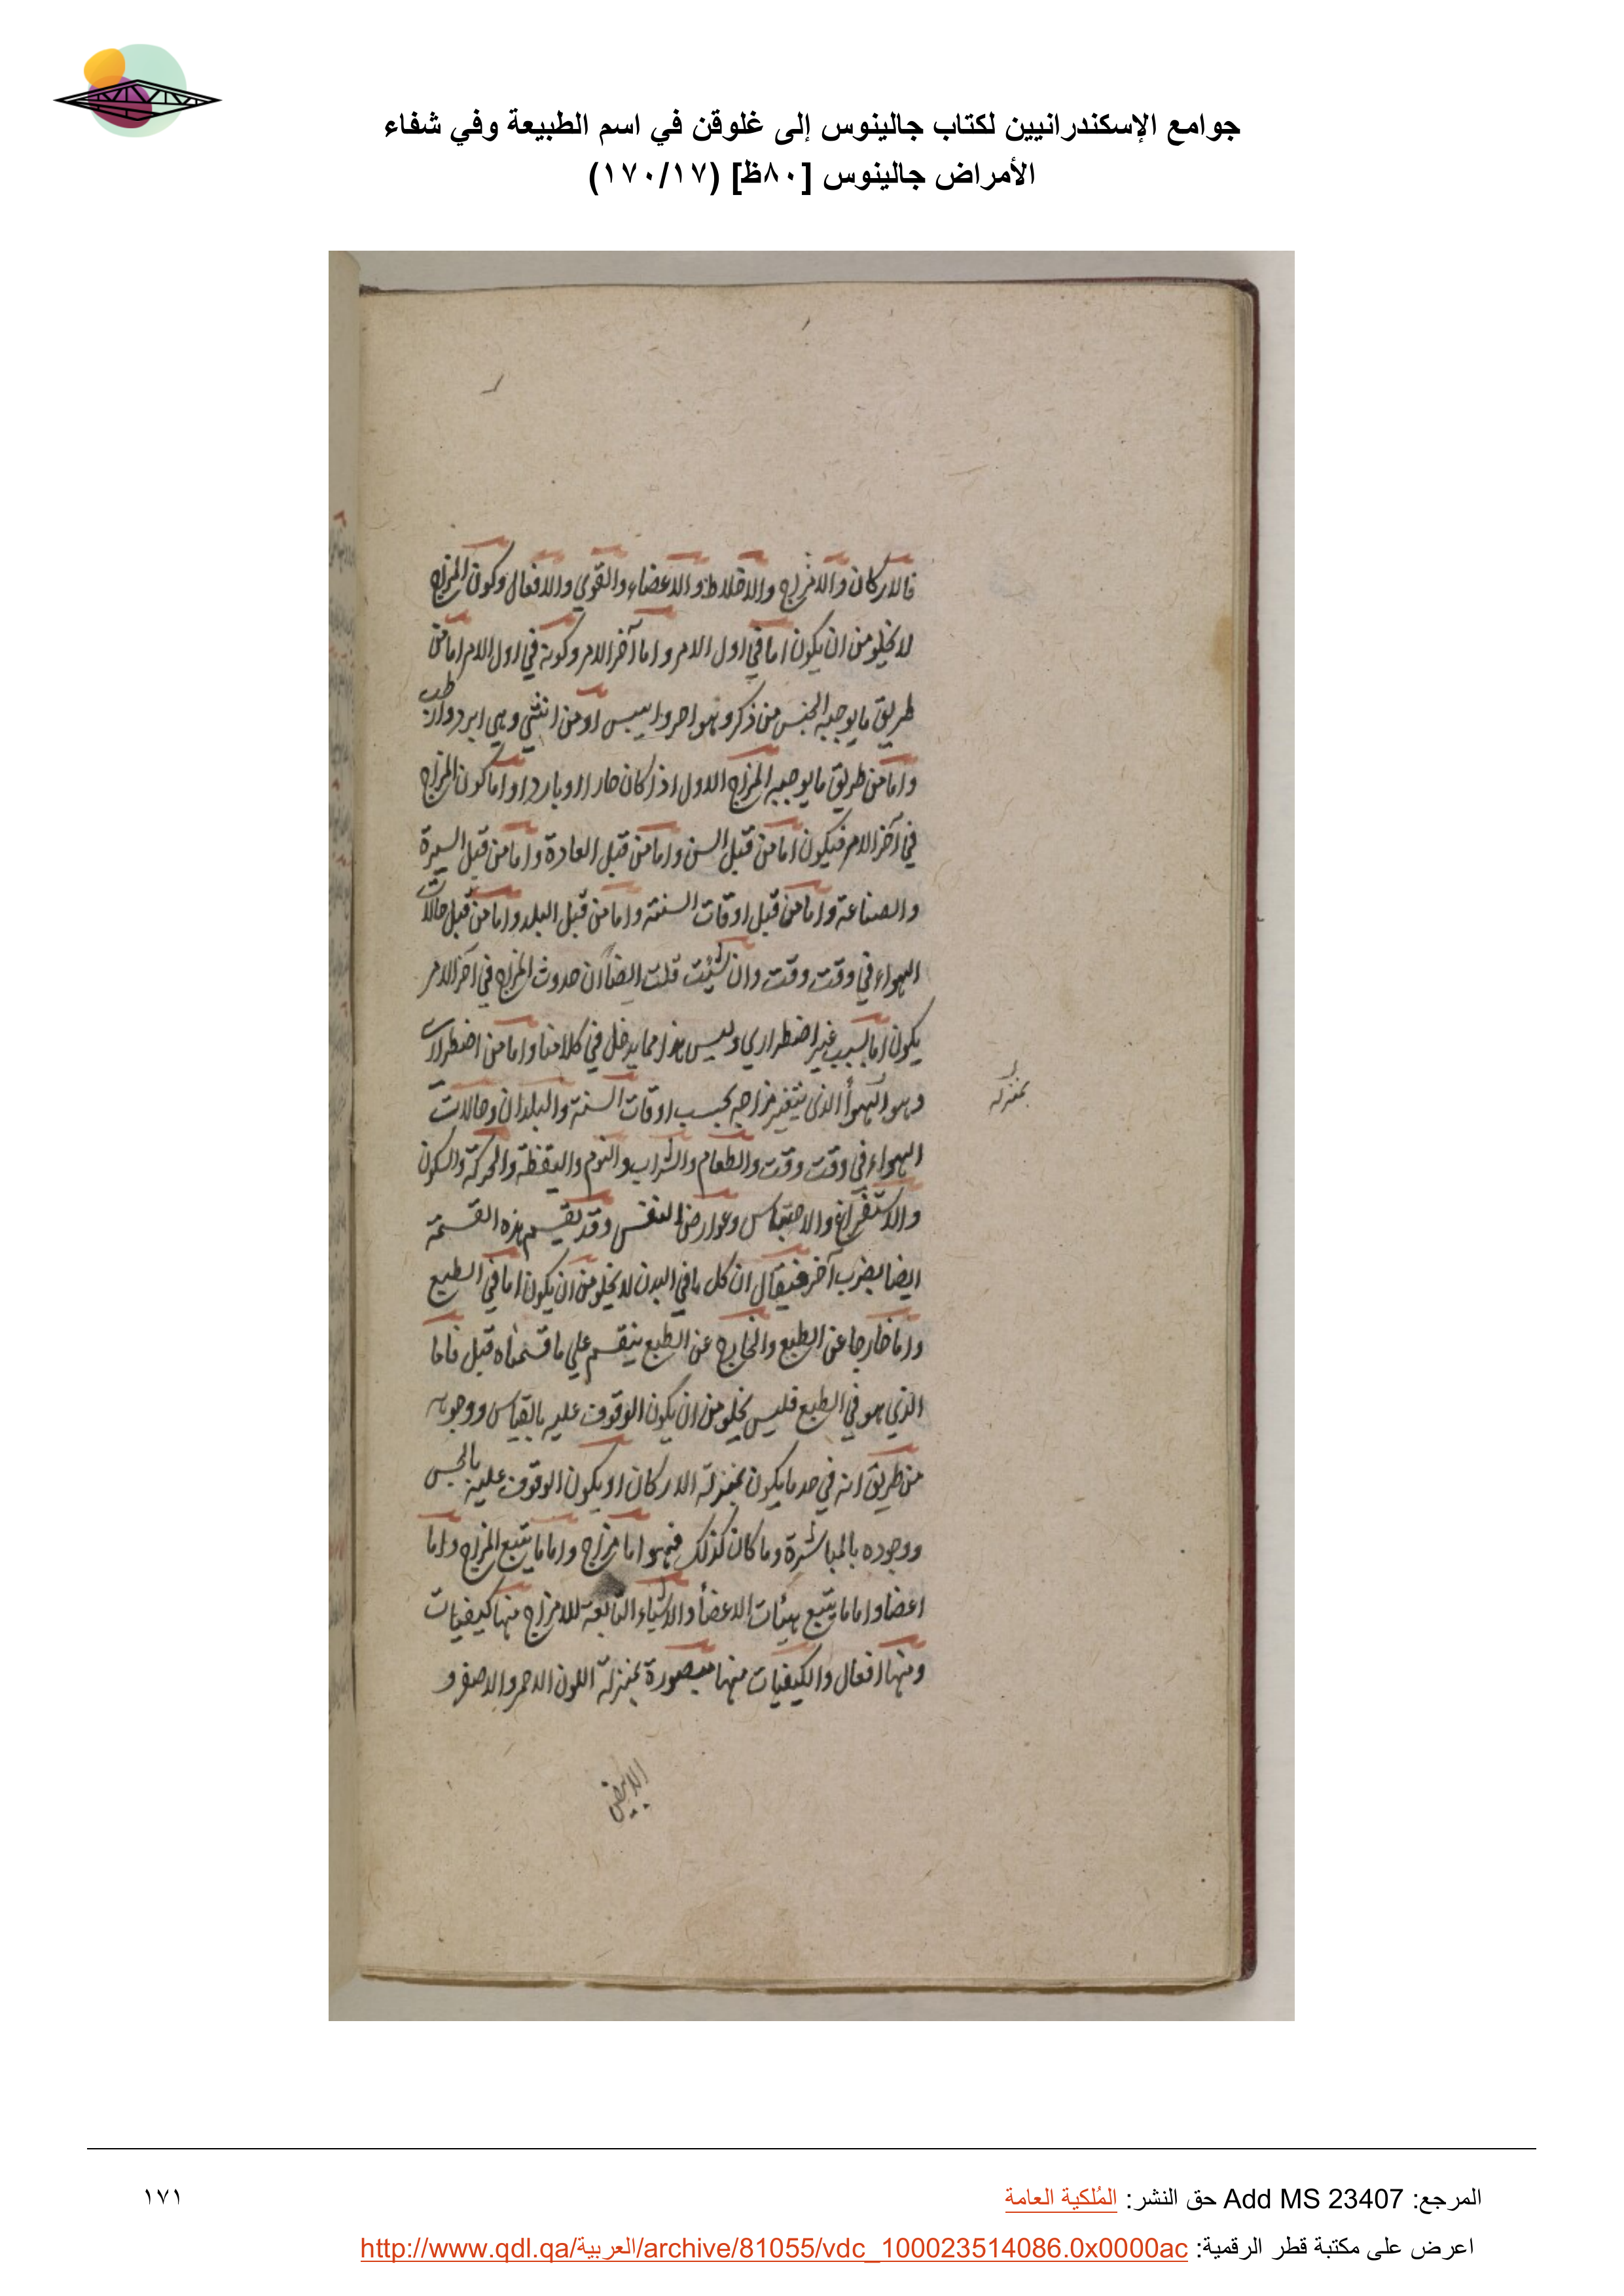 جوامع الإسكندرانيين لكتاب جالينوس إلى غلوقن في اسم الطبيعة وفي شفاء
الأمراض جالينوس [٨٠ظ] (١٧٠/١٧)
فالاركان والامزاج والاخلاط والاعضاء والقوي والافعال وكون المزاج
لا يخلو من ان يكون اما في اول الامر واما آخر الامر وكونه في اول الامر اما من
طريق ما يوجبه الجنس من ذكر وهو احر وايبس او من انثي وهي ابرد وارطب
واما من طريق ما يوجبه المزاج الاول اذا كان حارا او باردا واما كون المزاج
في آخر الامر فيكون اما من قبل السن واما من قبل العادة واما من قبل السيرة
والصناعة واما من قبل اوقات السنة واما من قبل البلد واما من قبل حالات
الهواء في وقت وقت وان شئت قلت ايضا ان حدوث المزاج في آخر الامر
يكون اما بسبب غير اضطراري وليس هذا مما يدخل في كلامنا واما من اضطراري
بمنزلة
وهو الهوأ الذي يتغير مزاجه بحسب اوقات السنة والبلدان وحالات
الهواء في وقت وقت والطعام والشراب والنوم واليقظة والحركة والسكون
والاستفراغ والاحتباس وعوارض النفس وقد يقسم هذه القسمة
ايضا بضرب آخر فيقال ان كل ما في البدن لا يخلو من ان يكون اما في الطبع
واما خارجا عن الطبع والخارج عن الطبع ينقسم علي ما قسمناه قبل فاما
الذي هو في الطبع فليس يخلو من ان يكون الوقوف عليه بالقياس ووجوده
من طريق انه في حد ما يكون بمنزلة الاركان او يكون الوقوف عليه بالحس
ووجوده بالمباشرة وما كان كذلك فهو اما مزاج واما ما يتبع المزاج واما
اعضا واما ما يتبع هيئات الاعضأ والاشياء التابعة للامزاج منها كيفيات
ومنها افعال والكيفيات منها مبصورة بمنزلة اللون الاحمر والاصفر و
الابيض
المرجع: Add MS 23407 حق النشر: المُلكية العامة
١٧١
اعرض على مكتبة قطر الرقمية: http://www.qdl.qa/العربية/archive/81055/vdc_100023514086.0x0000ac